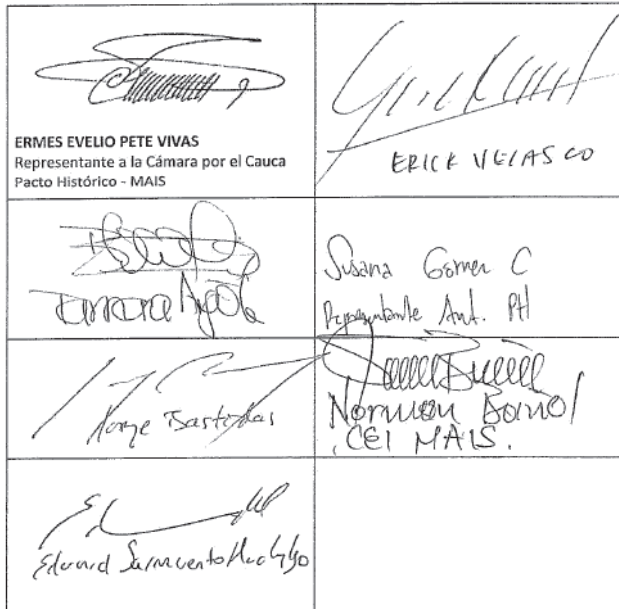 ERMES EVELIO PETE VIVAS
Representante a la Cámara por el Cauca
Pacto Histórico - MAIS
ERICK VELASCO
Susana Gomez C
Representante Ant. PH
Jorge Bastidas
Norman Bañol
CEI MAIS.
Eduard Sarmiento Hidalgo